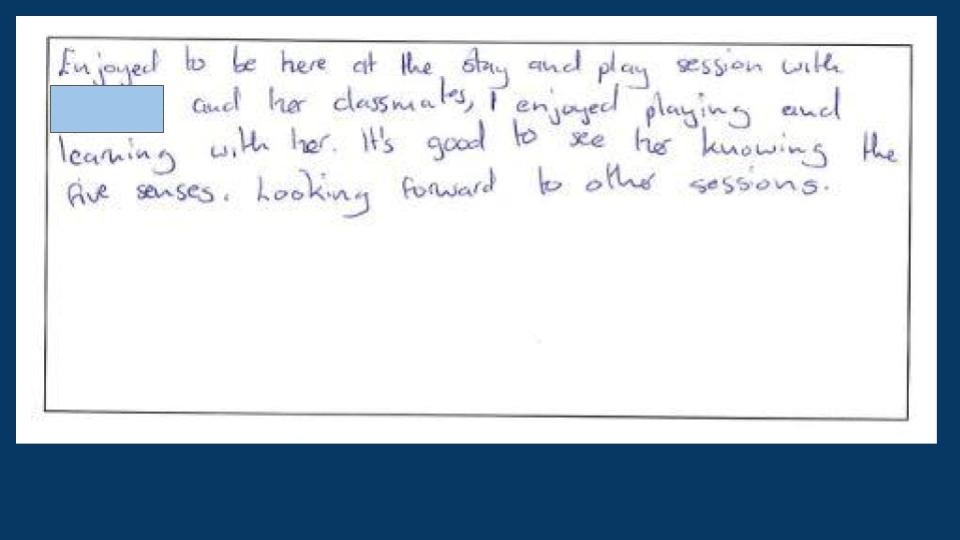 Enjoyed to be here at the stay and play session with
and her classmates, I enjoyed playing and
learning with her. It's good to see her knowing the
five senses. Looking forward to other sessions.